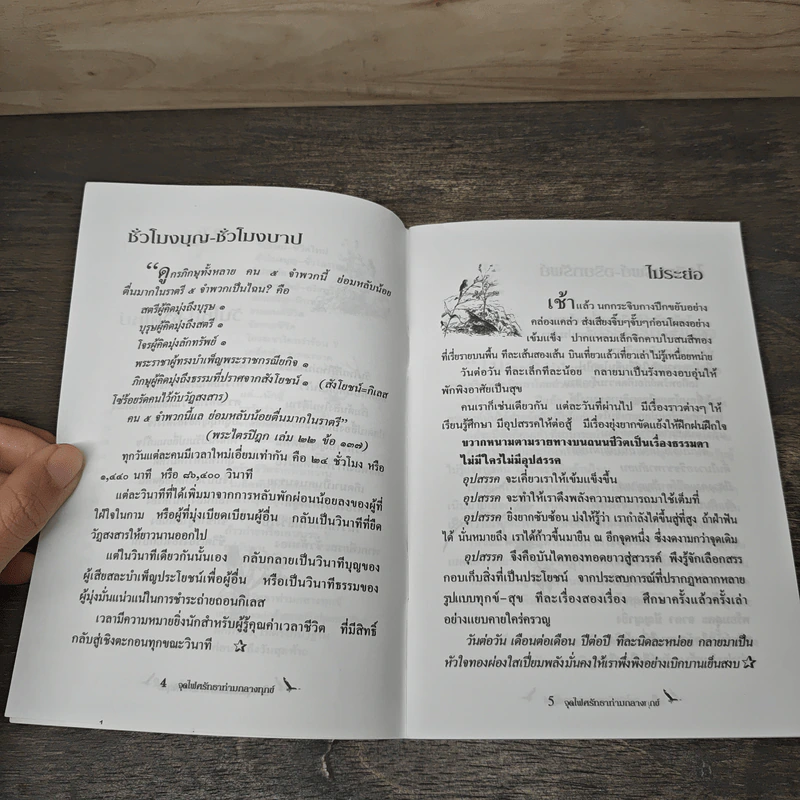 ชั่วโมงบุญ-ชั่วโมงบาป
“ดูกรภิกษุทั้งหลาย คน ๕ จำพวกนี้ ย่อมหลับน้อย
ตื่นมากในราตรี ๕ จำพวกเป็นไฉน? คือ
สตรีผู้คิดมุ่งถึงบุรุษ ๑
บุรุษผู้คิดมุ่งถึงสตรี ๑
โจรผู้คิดมุ่งลักทรัพย์ ๑
พระราชาผู้ทรงบำเพ็ญพระราชกรณียกิจ ๑
ภิกษุผู้คิดมุ่งถึงธรรมที่ปราศจากสังโยชน์ ๑ (สังโยชน์=กิเลส
โซ่ร้อยรัดคนไว้กับวัฏสงสาร)
คน ๕ จำพวกนี้แล ย่อมหลับน้อยตื่นมากในราตรี”
(พระไตรปิฎก เล่ม ๒๒ ข้อ ๑๓๗)
ทุกวันแต่ละคนมีเวลาใหม่เอี่ยมเท่ากัน คือ ๒๔ ชั่วโมง หรือ
๑,๔๔๐ นาที หรือ ๘๖,๔๐๐ วินาที
แต่ละวินาทีที่ได้เพิ่มมาจากการหลับพักผ่อนน้อยลงของผู้ที่
ใฝ่ใจในกาม หรือผู้ที่มุ่งเบียดเบียนผู้อื่น กลับเป็นวินาทีที่ยืด
วัฏสงสารให้ยาวนานออกไป
แต่ในวินาทีเดียวกันนั้นเอง กลับกลายเป็นวินาทีบุญของ
ผู้เสียสละบำเพ็ญประโยชน์เพื่อผู้อื่น หรือเป็นวินาทีธรรมของ
ผู้มุ่งมั่นแน่วแน่ในการชำระถ่ายถอนกิเลส
เวลามีความหมายยิ่งนักสำหรับผู้รู้คุณค่าเวลาชีวิต ที่มีสิทธิ์
กลับสู่เชิงตะกอนทุกขณะวินาที
4 จุดไฟศรัทธาท่ามกลางทุกข์
ไม่ระย่อ
เช้าแล้ว นกกระจิบกางปีกขยับอย่าง
คล่องแคล่ว ส่งเสียงจิ๊บๆจั๊บๆก่อนโผลงอย่าง
เข้มแข็ง ปากแหลมเล็กจิกคาบใบสนสีทอง
ที่เรี่ยรายบนพื้น ทีละเส้นสองเส้น บินเที่ยวแล้วเที่ยวเล่าไม่รู้เหนื่อยหน่าย
วันต่อวัน ทีละเล็กทีละน้อย กลายมาเป็นรังทองอบอุ่นให้
พักพิงอาศัยเป็นสุข
คนเราก็เช่นเดียวกัน แต่ละวันที่ผ่านไป มีเรื่องราวต่างๆ ให้
เรียนรู้ศึกษา มีอุปสรรคให้ต่อสู้ มีเรื่องยุ่งยากขัดแย้งให้ฝึกฝนฝืนใจ
ขวากหนามตามรายทางบนถนนชีวิตเป็นเรื่องธรรมดา
ไม่มีใครไม่มีอุปสรรค
อุปสรรค จะเคี่ยวเราให้เข้มแข็งขึ้น
อุปสรรค จะทำให้เราดึงพลังความสามารถมาใช้เต็มที่
อุปสรรค ยิ่งยากซับซ้อน บ่งให้รู้ว่า เรากำลังไต่ขึ้นสู่ที่สูง ถ้าฝ่าฟัน
ได้ นั่นหมายถึง เราได้ก้าวขึ้นมายืน ณ อีกจุดหนึ่ง ซึ่งงดงามกว่าจุดเดิม
อุปสรรค จึงคือบันไดทองทอดยาวสู่สวรรค์ พึงรู้จักเลือกสรร
กอบเก็บสิ่งที่เป็นประโยชน์ จากประสบการณ์ที่ปรากฏหลากหลาย
รูปแบบทุกข์-สุข ทีละเรื่องสองเรื่อง ศึกษาครั้งแล้วครั้งเล่า
อย่างแยบคายใคร่ครวญ
วันต่อวัน เดือนต่อเดือน ปีต่อปี ทีละนิดละหน่อย กลายมาเป็น
หัวใจทองผ่องใสเปี่ยมพลังมั่นคงให้เราพึ่งพิงอย่างเบิกบานเย็นสงบ
5 จุดไฟศรัทธาท่ามกลางทุกข์